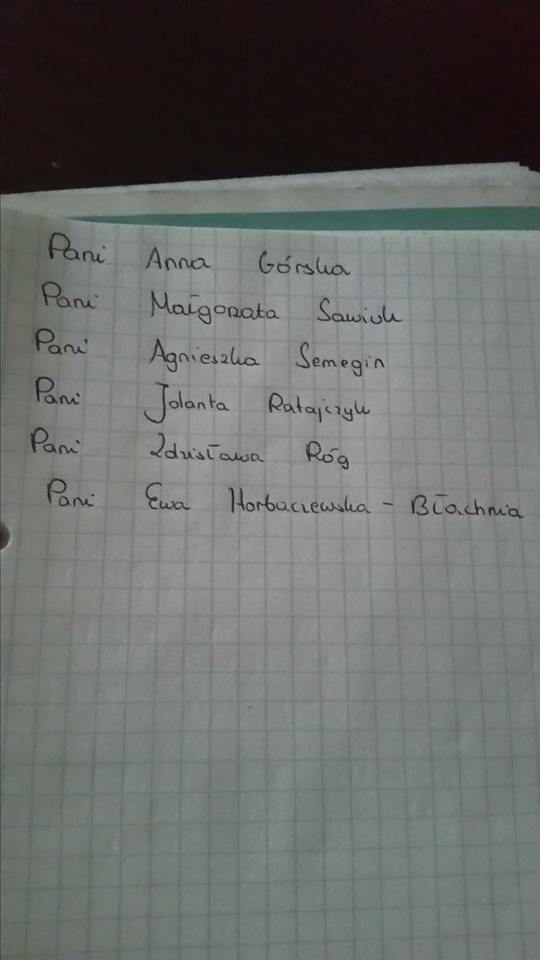 Pani Anna Górska
Pani Małgorzata Sawiuk
Pani Agnieszka Semegin
Pani Jolanta Ratajczyk
Pani Zdzisława Róg
Pani Ewa Horbaczewska - Błachnia